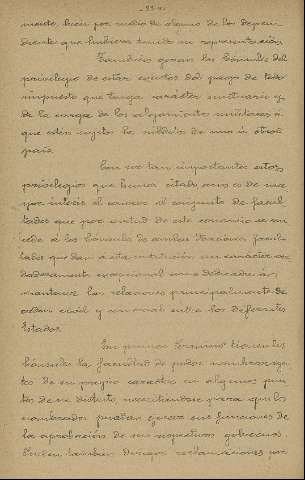 mente, bien por medio de alguno de los depen-
dientes que hubiera tenido su representación.
También gozan los Cónsules del
privilegio de estar exentos del pago de todo
impuesto que tenga carácter suntuario y
de la carga de los alojamientos militares á
que están sujetos los súbditos de uno ú otro
pais.
Con ser tan importantes estos
privilegios que hemos citado no es de ma-
yor interés el conocer el conjunto de facul-
tades que por virtud de este convenio se con-
cede á los Cónsules de ambas Naciones facul-
tades que dan á esta institución un carácter ver-
daderamente excepcional
mantener las relaciones principalmente de
orden civil y comercial entre los diferentes
Estados.
En primer término tienen los
Cónsules la facultad de poder nombrar agen-
tes de su propio carácter en algunos pun-
tos de su distrito, necesitándose para que los
nombrados puedan ejercer sus funciones de
la aprobación de sus respectivos gobiernos.
Pueden tambien dirigir reclamaciones por